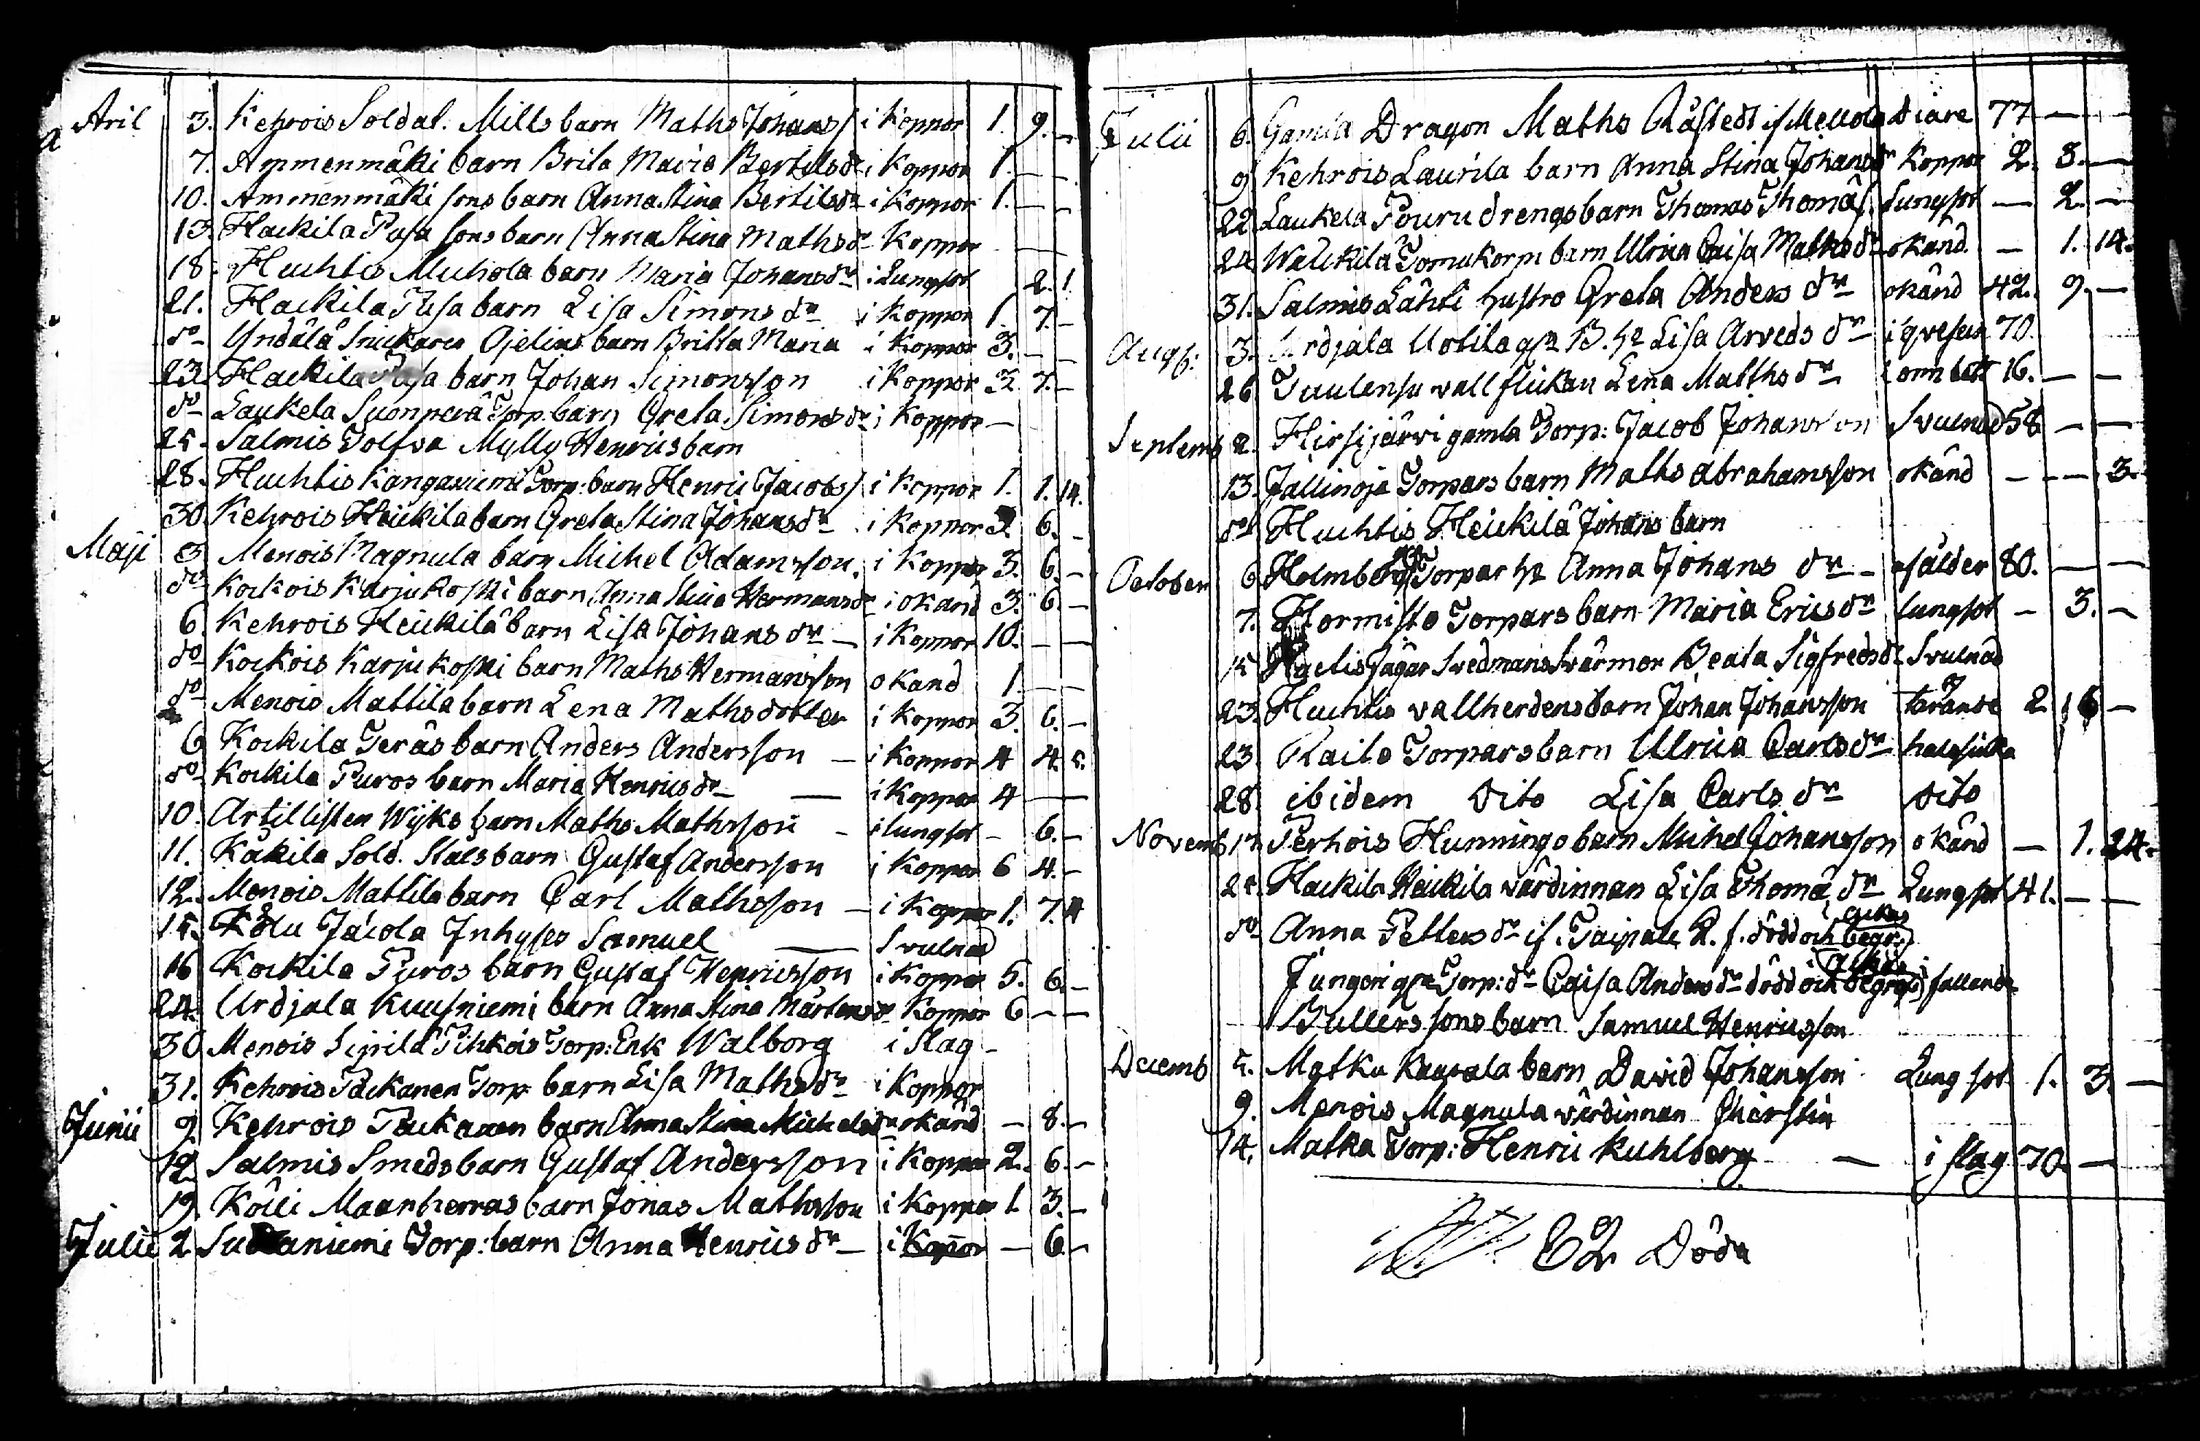 Aril 3. Kehrois Soldat. Mills barn Maths Johans/ i Koppor 1. 9. —
7. Ammenmäki barn Brita Maria Bertilsdr i Koppor 1. — —
10. Ammenmäki sons barn Anna Stina Bertilsdr i Koppor 1. — —
13. Hackila Pusa sons barn Anna Stina Mathsdr Koppor — —
18. Huhtis Muhola barn Maria Johansdr i Lungsot 2. 1.
21. Hackila Pusa barn Lisa Simons dr i Koppor 1. 7. —
do Yndälä Snickares Ojelins barn Britta Maria i Koppor 3. — —
23. Hackila Pusa barn Johan Simonsson i Koppor 3. 7. —
do Laukela Suonperä Torp. barn Greta Simonsdr i Koppor —
25. Salmis Tolfva Mylly Henrics barn
28. Huhtis Kanganiemi Torp: barn Henric Jacobs/ i Koppor 1. 1. 14.
30. Kehrois Heickila barn Greta Stina Johansdr i Koppor 3. 6. —
Maji 3. Menois Magnula barn Michel Adamsson. i Koppor 3. 6. —
do Kockois Karjukoski barn Anna Stina Hermansdr i okänd 3. 6. —
6. Kehrois Heickilä barn Lisa Johans dr — i Koppor 10. — —
do Kockois Karjukoski barn Maths Hermansson okänd 1. — —
do Menois Mattila barn Lena Mathsdotter i Koppor 3. 6. —
6 Kockila Teräs barn Anders Andersson — i Koppor 4 4. 2.
do Kockila Puros barn Maria Henricsdr — i Koppor 4 — —
10. Artillisten Wijks barn Maths Mathsson — i lungsot — 6. —
11. Käkilä Sold. Stals barn Gustaf Andersson i Koppor 6 4. —
12. Menois Mattila barn Carl Mathsson — i Koppor 1. 7. 4
15. Kölli Jacola Inhyses Samuel — Svulnad
16 Kockila Puros barn Gustaf Henricsson i Koppor 5. 6. —
24. Urdjala Kuusniemi barn Anna Stina Mårtensdr Koppor 6 — —
30. Menois Sipilä Pihkois Torp: Enk Walborg i Slag —
31. Kehrois Packanen Torp barn Lisa Mathsdr i Koppor
Junii 9. Kehrois Packanen barn Anna Stina Michelsdr okänd — 8. —
12. Salmis Smeds barn Gustaf Andersson i Koppor 2. 6. —
19. Kölli Maanherras barn Jonas Mathsson i Koppor 1 3. —
Julii 2. Torp: barn Anna Henrics dr — i Koppor — 6. —
Julii 6. Gamla Dragon Maths Råstedt if Mellola diare 77 — —
9 Kehrois Laurila barn Anna Stina Johansdr Koppor 2. 3. —
22 Laukela Pouru drengs barn Thomas Thomäs. Lungsot — 2. —
24 Walckila Tornukorpi barn Ulrica Caisa Mathsdr okänd — 1. 14.
31. Salmis Lähti hustro Greta Anders dr okänd 42. 9. —
Augs: 3. Urdjala Uotila gla B. ha Lisa Arveds dr i gvesen 70.
26 Tuulensu vallflickan Lena Matths dr i ormbett 16. — —
Septemb 2. Hirsijärvi gamla Torp: Jacob Johansson Svulnad 58 — —
13. Jällinoja Torpars barn Maths Abrahamsson okänd — — 3.
do Huhtis Heickilä Johans barn
October 6 Holmberg Torpar ha Anna Johans dr — af ålder 80. — —
7. Hormisto Torpars barn Maria Ericsdr lungsot — 3. —
15 Jägar Svedmans Svärmor Beata Sigfredsdr Svulnad
23. Huhtis vallherdens barn Johan Johansson tärande 2 6 —
23. Raito Torpars barn Ulrica Carlsdr halssjuka
28 ibidem dito Lisa Carls dr dito
Novemb 17. Perhois Hunningo barn Michel Johansson okänd — 1. 24.
25 Hackila Heickila värdinnan Lisa Thomä dr Lungsot 41. — —
do Anna Petters dr if. Taipale K. f. död och begr.
Jungeri gla Torp: dr Caisa Anders dr död och begr. fallande
Bullers sons barn Samuel Henricsson
Decemb 5. Matku Kaurala barn David Johansson Lungsot 1. 3. —
9. Menois Magnula värdinnan Cherstin
14. Matka Torp: Henric Kuhlberg — i slag 70. —
62 Döda